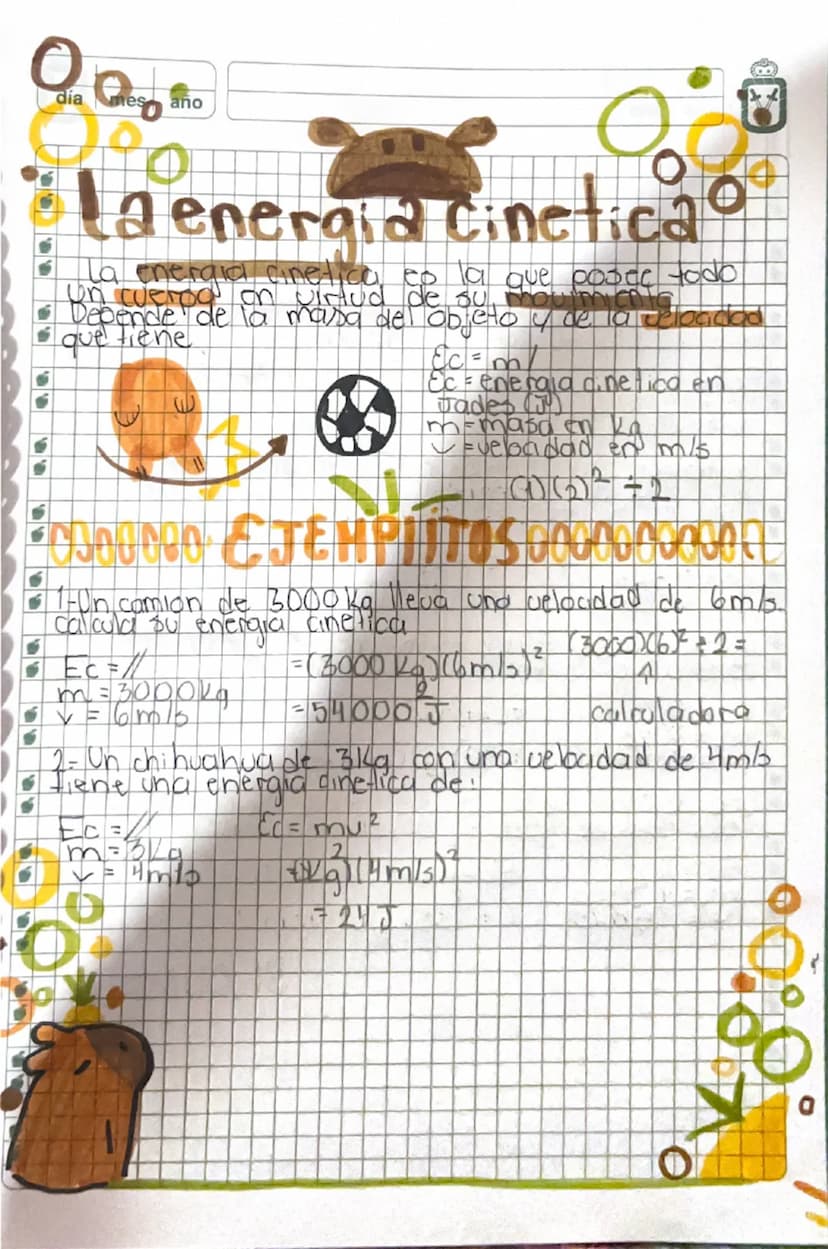 día mes año
La energia cinetica
La energia cinetica es la que posee todo
un cuerpo en virtud de su movimiento
Depende de la masa del objeto y de la velocidad
que tiene
Ec = m/
Ec = energia cinetica en
Joules (J)
m = masa en kg
v = velocidad en m/s
(1)(2)² ÷ 2
EJEMPLITOS
1-Un camion de 3000 kg lleva una velocidad de 6m/s.
calcula su energia cinetica
(3000)(6)² ÷ 2 =
Ec = // = (3000 kg)(6m/s)²
m = 3000kg 2
v = 6m/s = 54000 J calculadora
2- Un chihuahua de 3kg con una velocidad de 4m/s
tiene una energia cinetica de:
Ec = // Ec = mv²
m = 3kg 2
v = 4m/s (4m/s)²
= 24 J